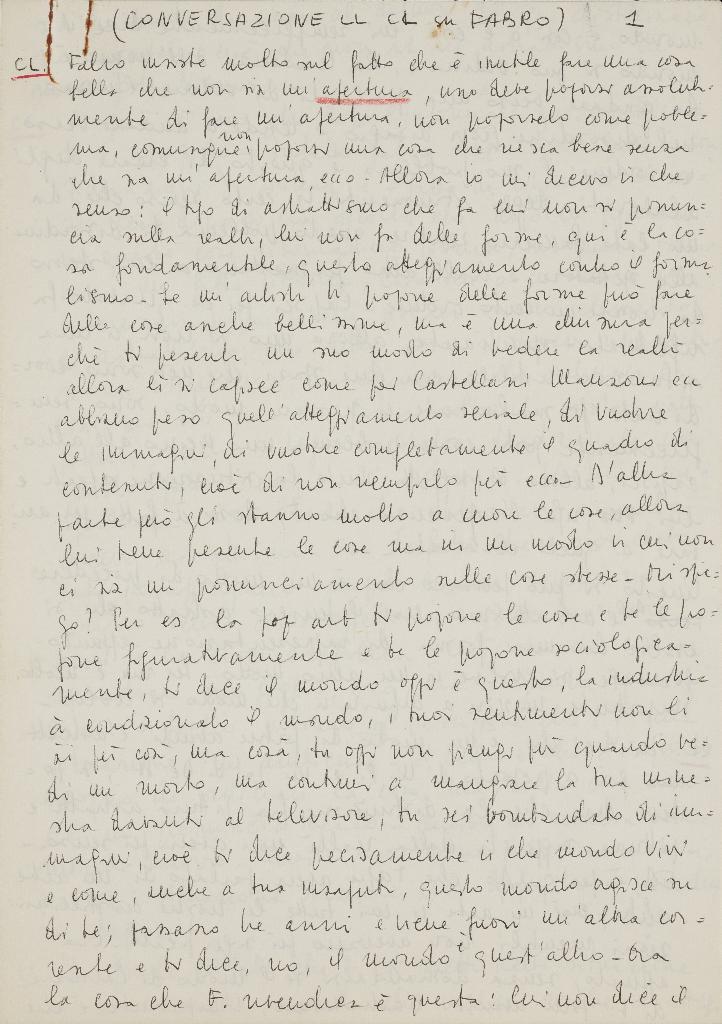 (CONVERSAZIONE LL CL su FABRO) 1
CL. Fabro insiste molto sul fatto che è inutile fare una cosa
bella che non sia un'apertura, uno deve proporsi assoluta-
mente di fare un'apertura, non proporselo come proble-
ma, comunque non proporsi una cosa che riesca bene senza
che sia un'apertura, ecco - Allora io mi dicevo in che
senso: il tipo di astrattismo che fa lui non si pronun-
cia sulla realtà, lui non fa delle forme, qui è la co-
sa fondamentale, questo atteggiamento contro il forma-
lismo - Se un'artista ti propone delle forme può fare
delle cose anche bellissime, ma è una chiusura per-
chè ti presenta un suo modo di vedere la realtà
allora lì si capisce come poi Castellani Manzoni ecc
abbiano preso quell'atteggiamento seriale, di vuotare
le immagini, di vuotare completamente il quadro di
contenuti, cioè di non riempirlo più ecco - D'altra
parte però gli stanno molto a cuore le cose, allora
lui tiene presente le cose ma in un modo in cui non
ci sia un pronunciamento sulle cose stesse - Mi spie-
go? Per es la pop art ti propone le cose e te le pro-
pone figurativamente e te le propone sociologica-
mente, ti dice il mondo oggi è questo, la industria
à condizionato il mondo, i tuoi sentimenti non li
ài più così, ma cosà, tu oggi non piangi più quando ve-
di un morto, ma continui a mangiare la tua mine-
stra davanti al televisore, tu sei bombardato di im-
magini, cioè ti dice precisamente in che mondo vivi
e come, anche a tua insaputa, questo mondo agisce su
di te; passano tre anni e viene fuori un'altra cor-
rente e ti dice, no, il mondo è quest'altro - Ora
la cosa che F. rivendica è questa: lui non dice il